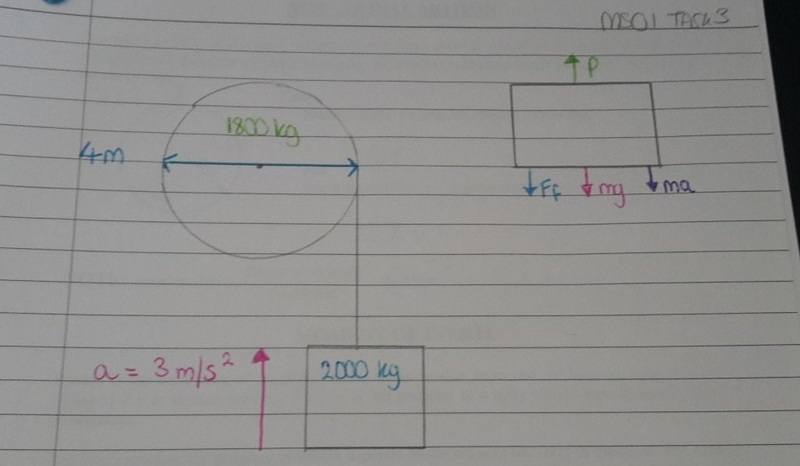 MS01 TASK 3
P
1800 kg
4m
Ff mg ma
a = 3 m/s²
2000 kg